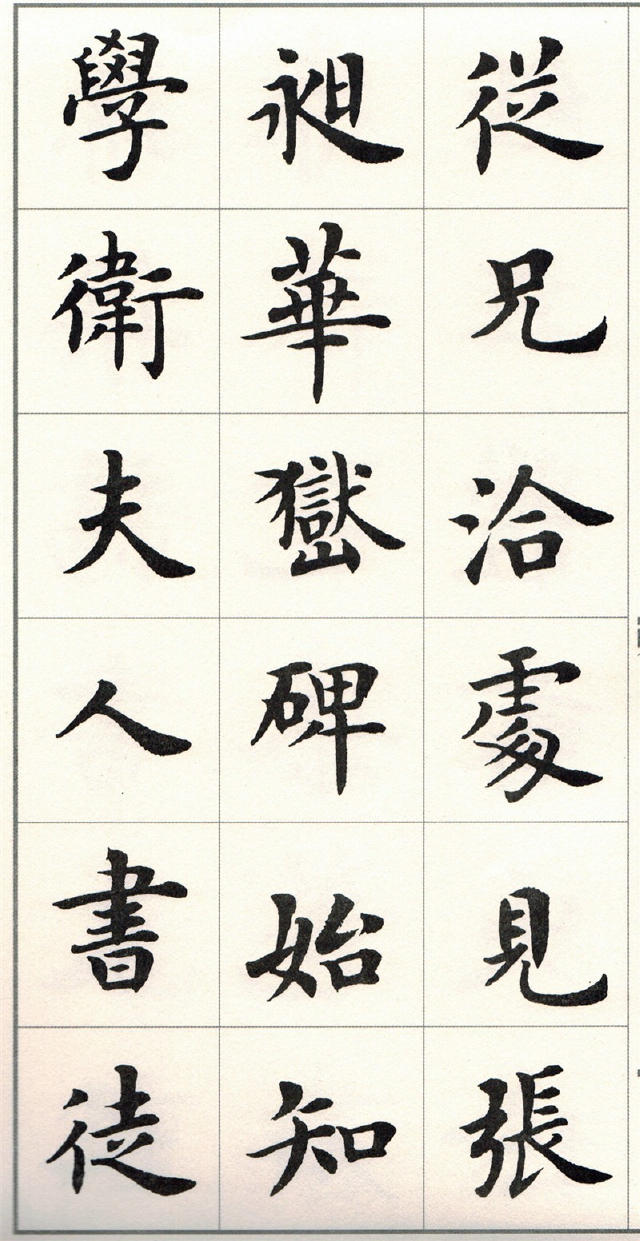 従兄洽處見張
昶華嶽碑始知
學衛夫人書徒